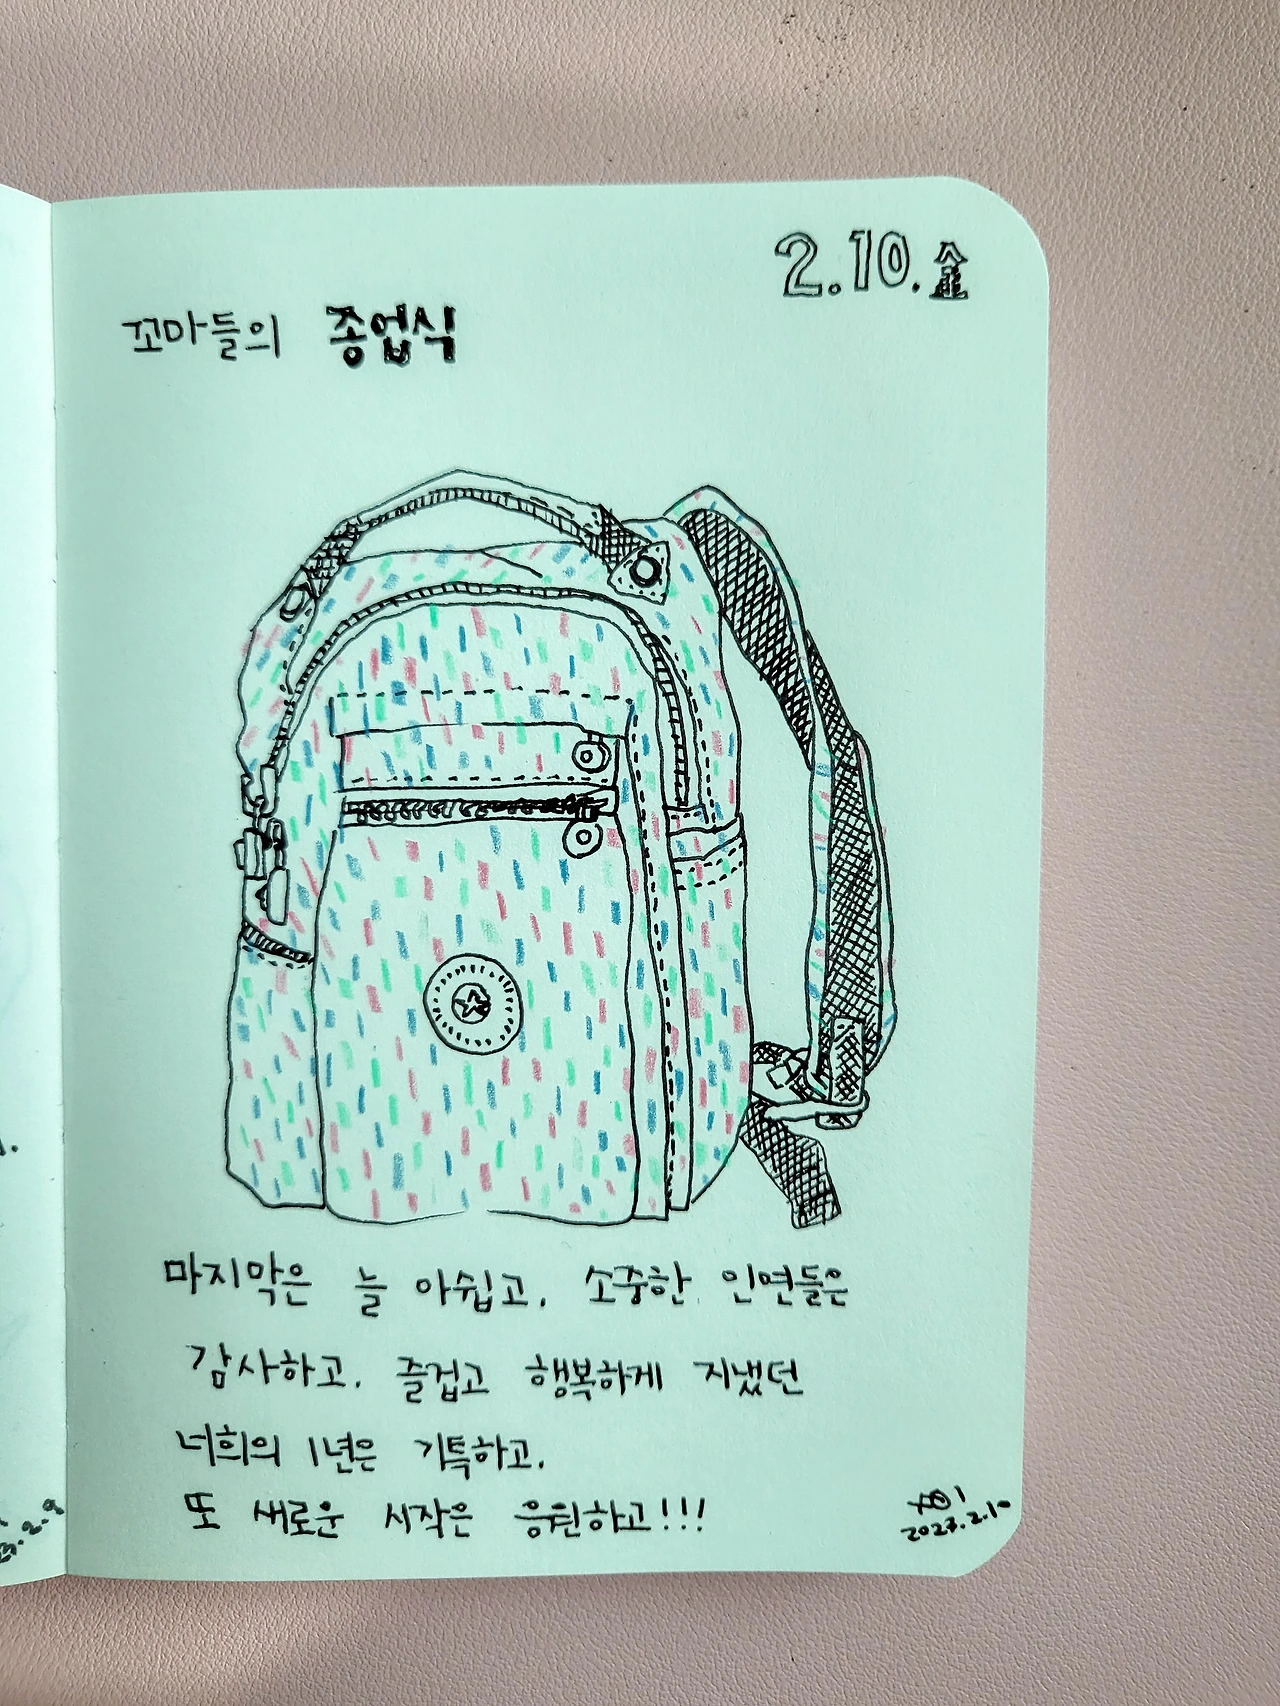 2.10.金
꼬마들의 종업식
마지막은 늘 아쉽고, 소중한 인연들은
감사하고, 즐겁고 행복하게 지냈던
너희의 1년은 기특하고,
또 새로운 시작은 응원하고!!!
2023.2.10